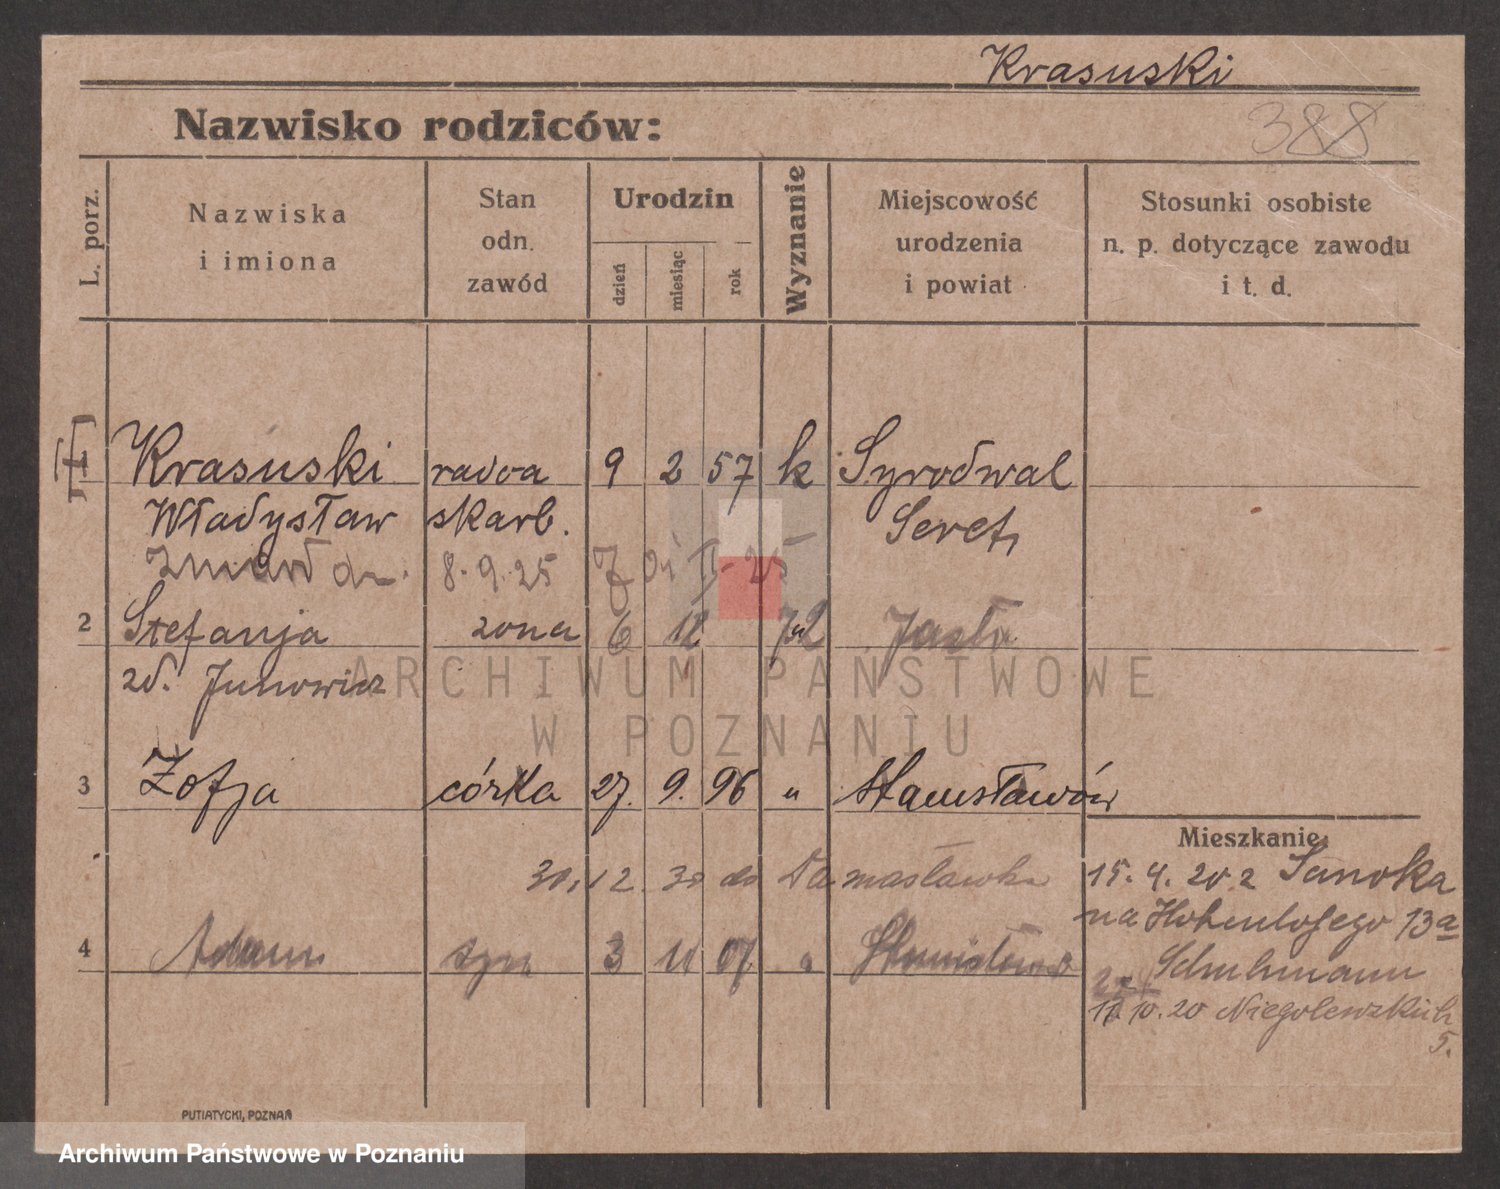 Krasuski
388
Nazwisko rodziców:
L. porz.
Nazwiska
i imiona
Stan
odn.
zawód
Urodzin
dzień
miesiąc
rok
Wyznanie
Miejscowość
urodzenia
i powiat
Stosunki osobiste
n. p. dotyczące zawodu
i t. d.
1 Krasuski radca 9 2 57 k
Władysław skarb. Seret
8.9.25
2 Stefanja żona 6 12 Jasło
zd.
3 Zofja córka 27. 9. 96 " Stanisławów
Mieszkanie:
30.12 30 do Damasławka
15.4.20 z Sanoka
na Hohenlohego 13a
4 Adam syn 3 11 07 " Stanisławów
Schuhmann
11.10.20 Niegolewskich
5.
PUTIATYCKI, POZNAŃ
ARCHIWUM PAŃSTWOWE
W POZNANIU
Archiwum Państwowe w Poznaniu